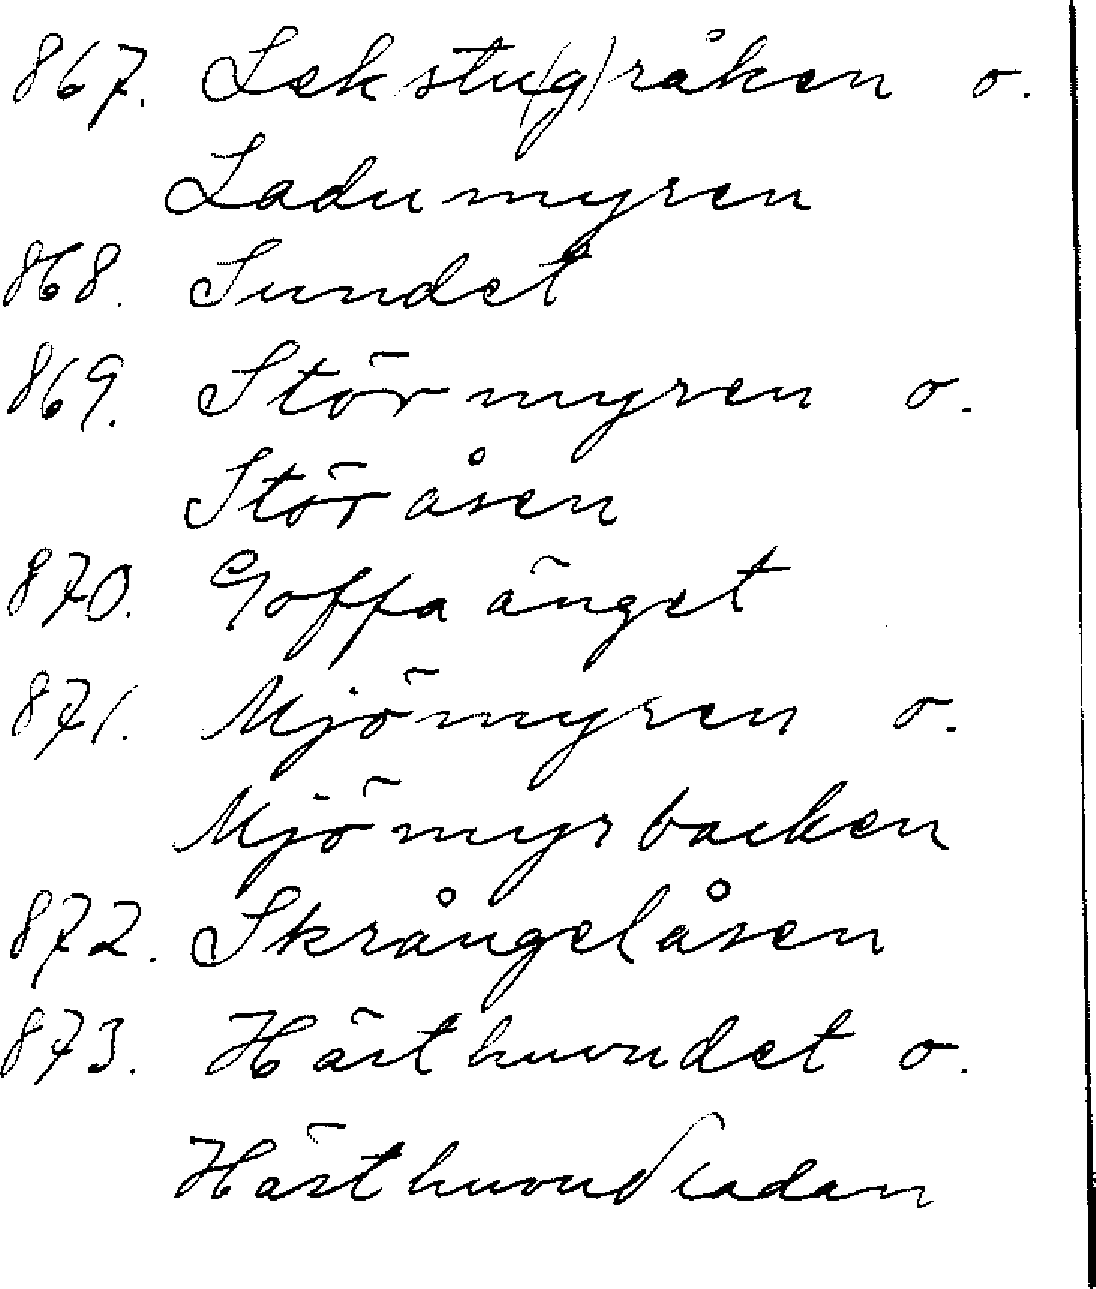 867. Lekstu(g)råken o.
Ladumyren
868. Sundet
869. Störmyren o.
Störåsen
870. Goffaänget
871. Mjömyren o.
Mjömyrbacken
872. Skrångelåsen
873. Hästhuvudet o.
Hästhuvudladan